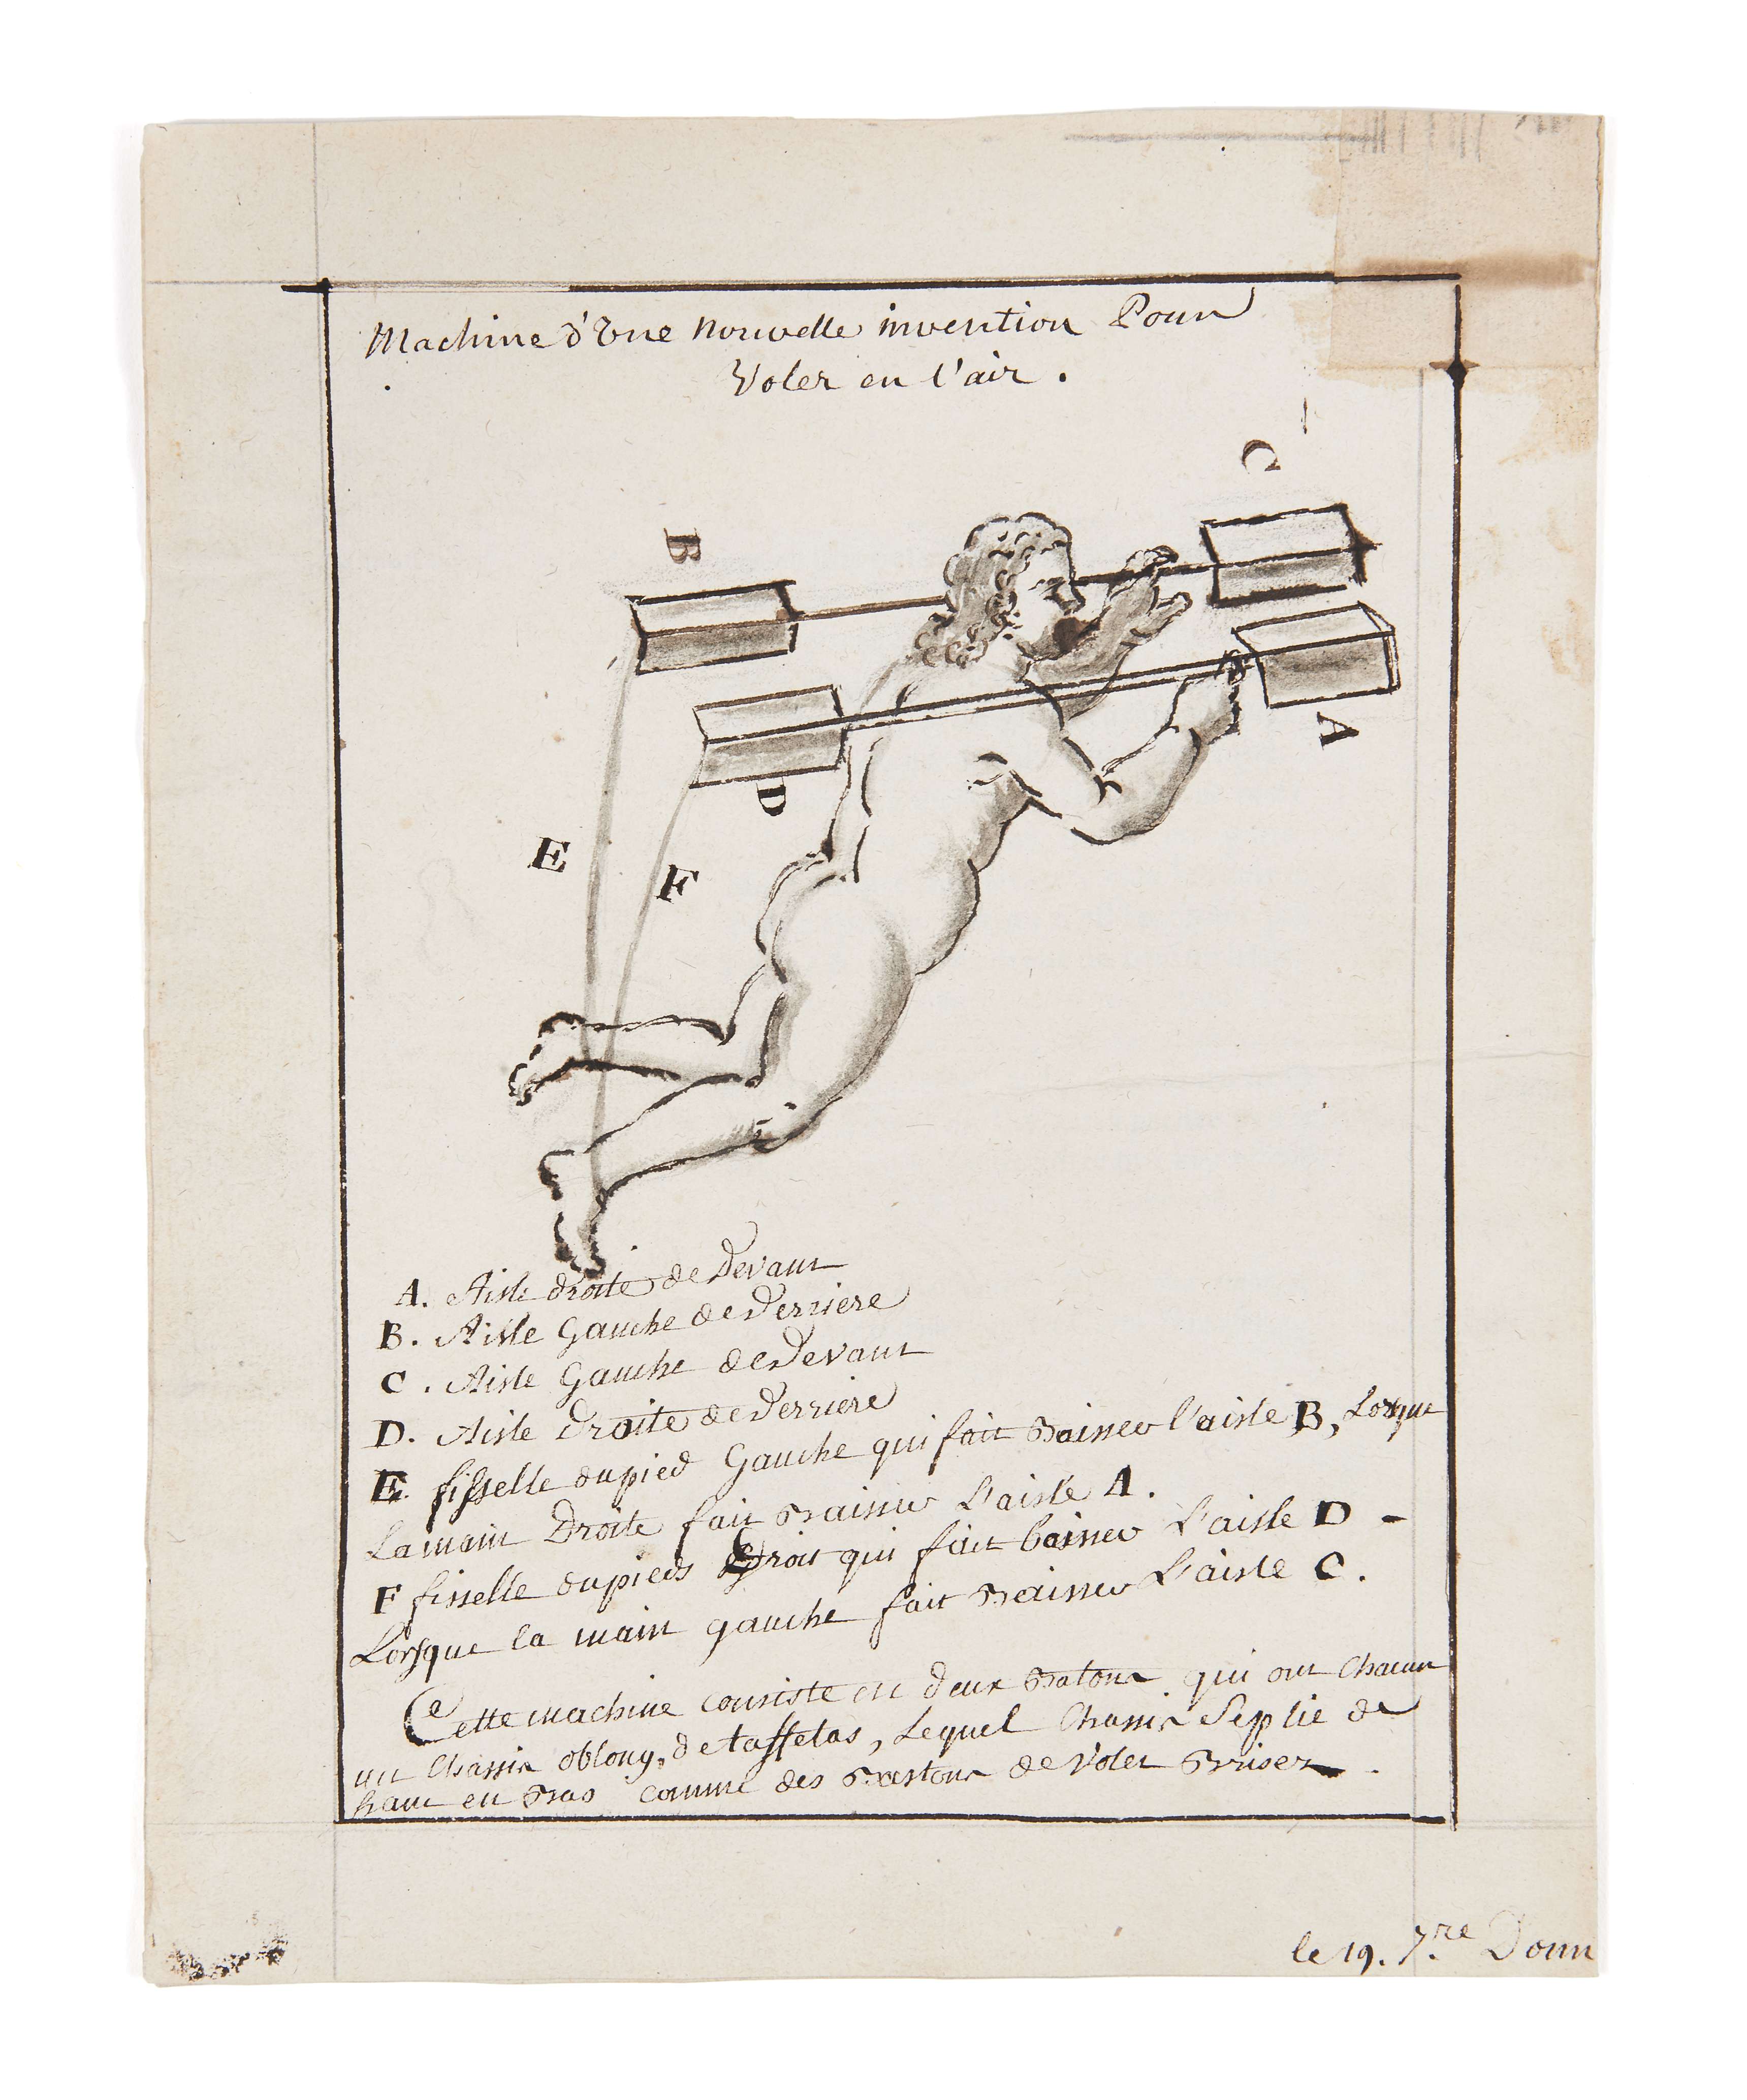 Machine d'Une Nouvelle invention Pour
Voler en l'air .
C
B
A
D
E
F
A. Aisle droite de Devant
B. Aisle Gauche de Derriere
C. Aisle Gauche de Devant
D. Aisle Droite de Derriere
E fisselle du pied Gauche qui fait Baisser l'aisle B, Lorsque
La main Droite fait Baisser L'aisle A.
F fisselle du pieds Droit qui fait baisser L'aisle D -
Lorsque la main gauche fait Baisser L'aisle C.
Cette machine consiste en deux Batons qui ont Chacun
un Chassis oblong, de taffetas, Lequel Chassis Se plie de
haut en Bas comme des Bastons de Volet Brisez .
le 19. 7.re Donn